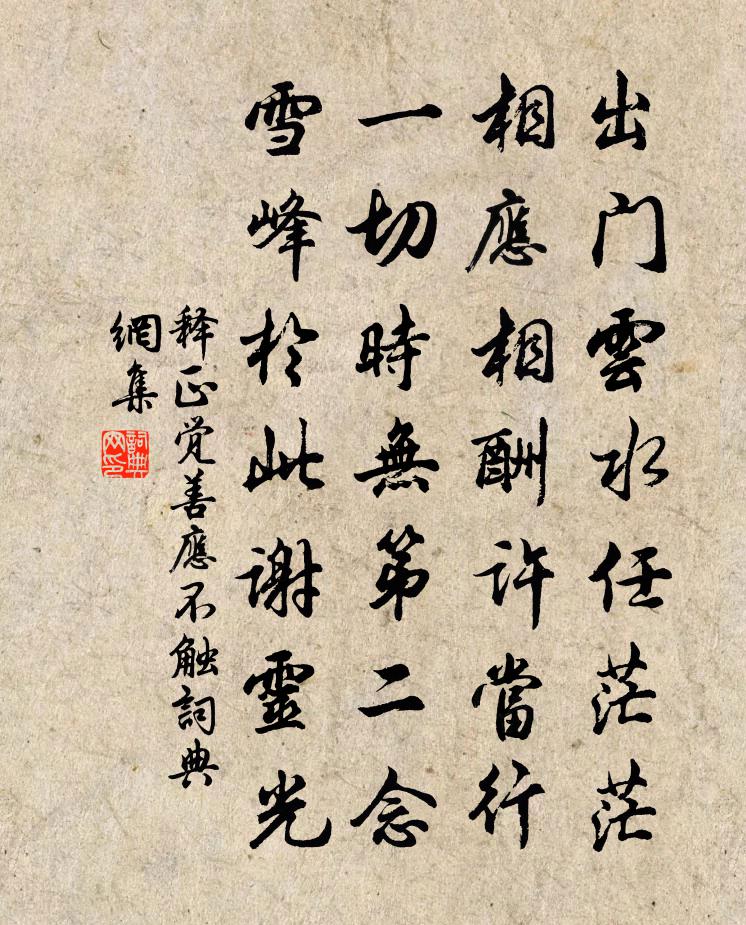 出门雲水任茫茫
相應相酬許當行
一切時無第二念
雪峰於此謝靈光
释正觉善應不触詞典
網集
詞典
网印